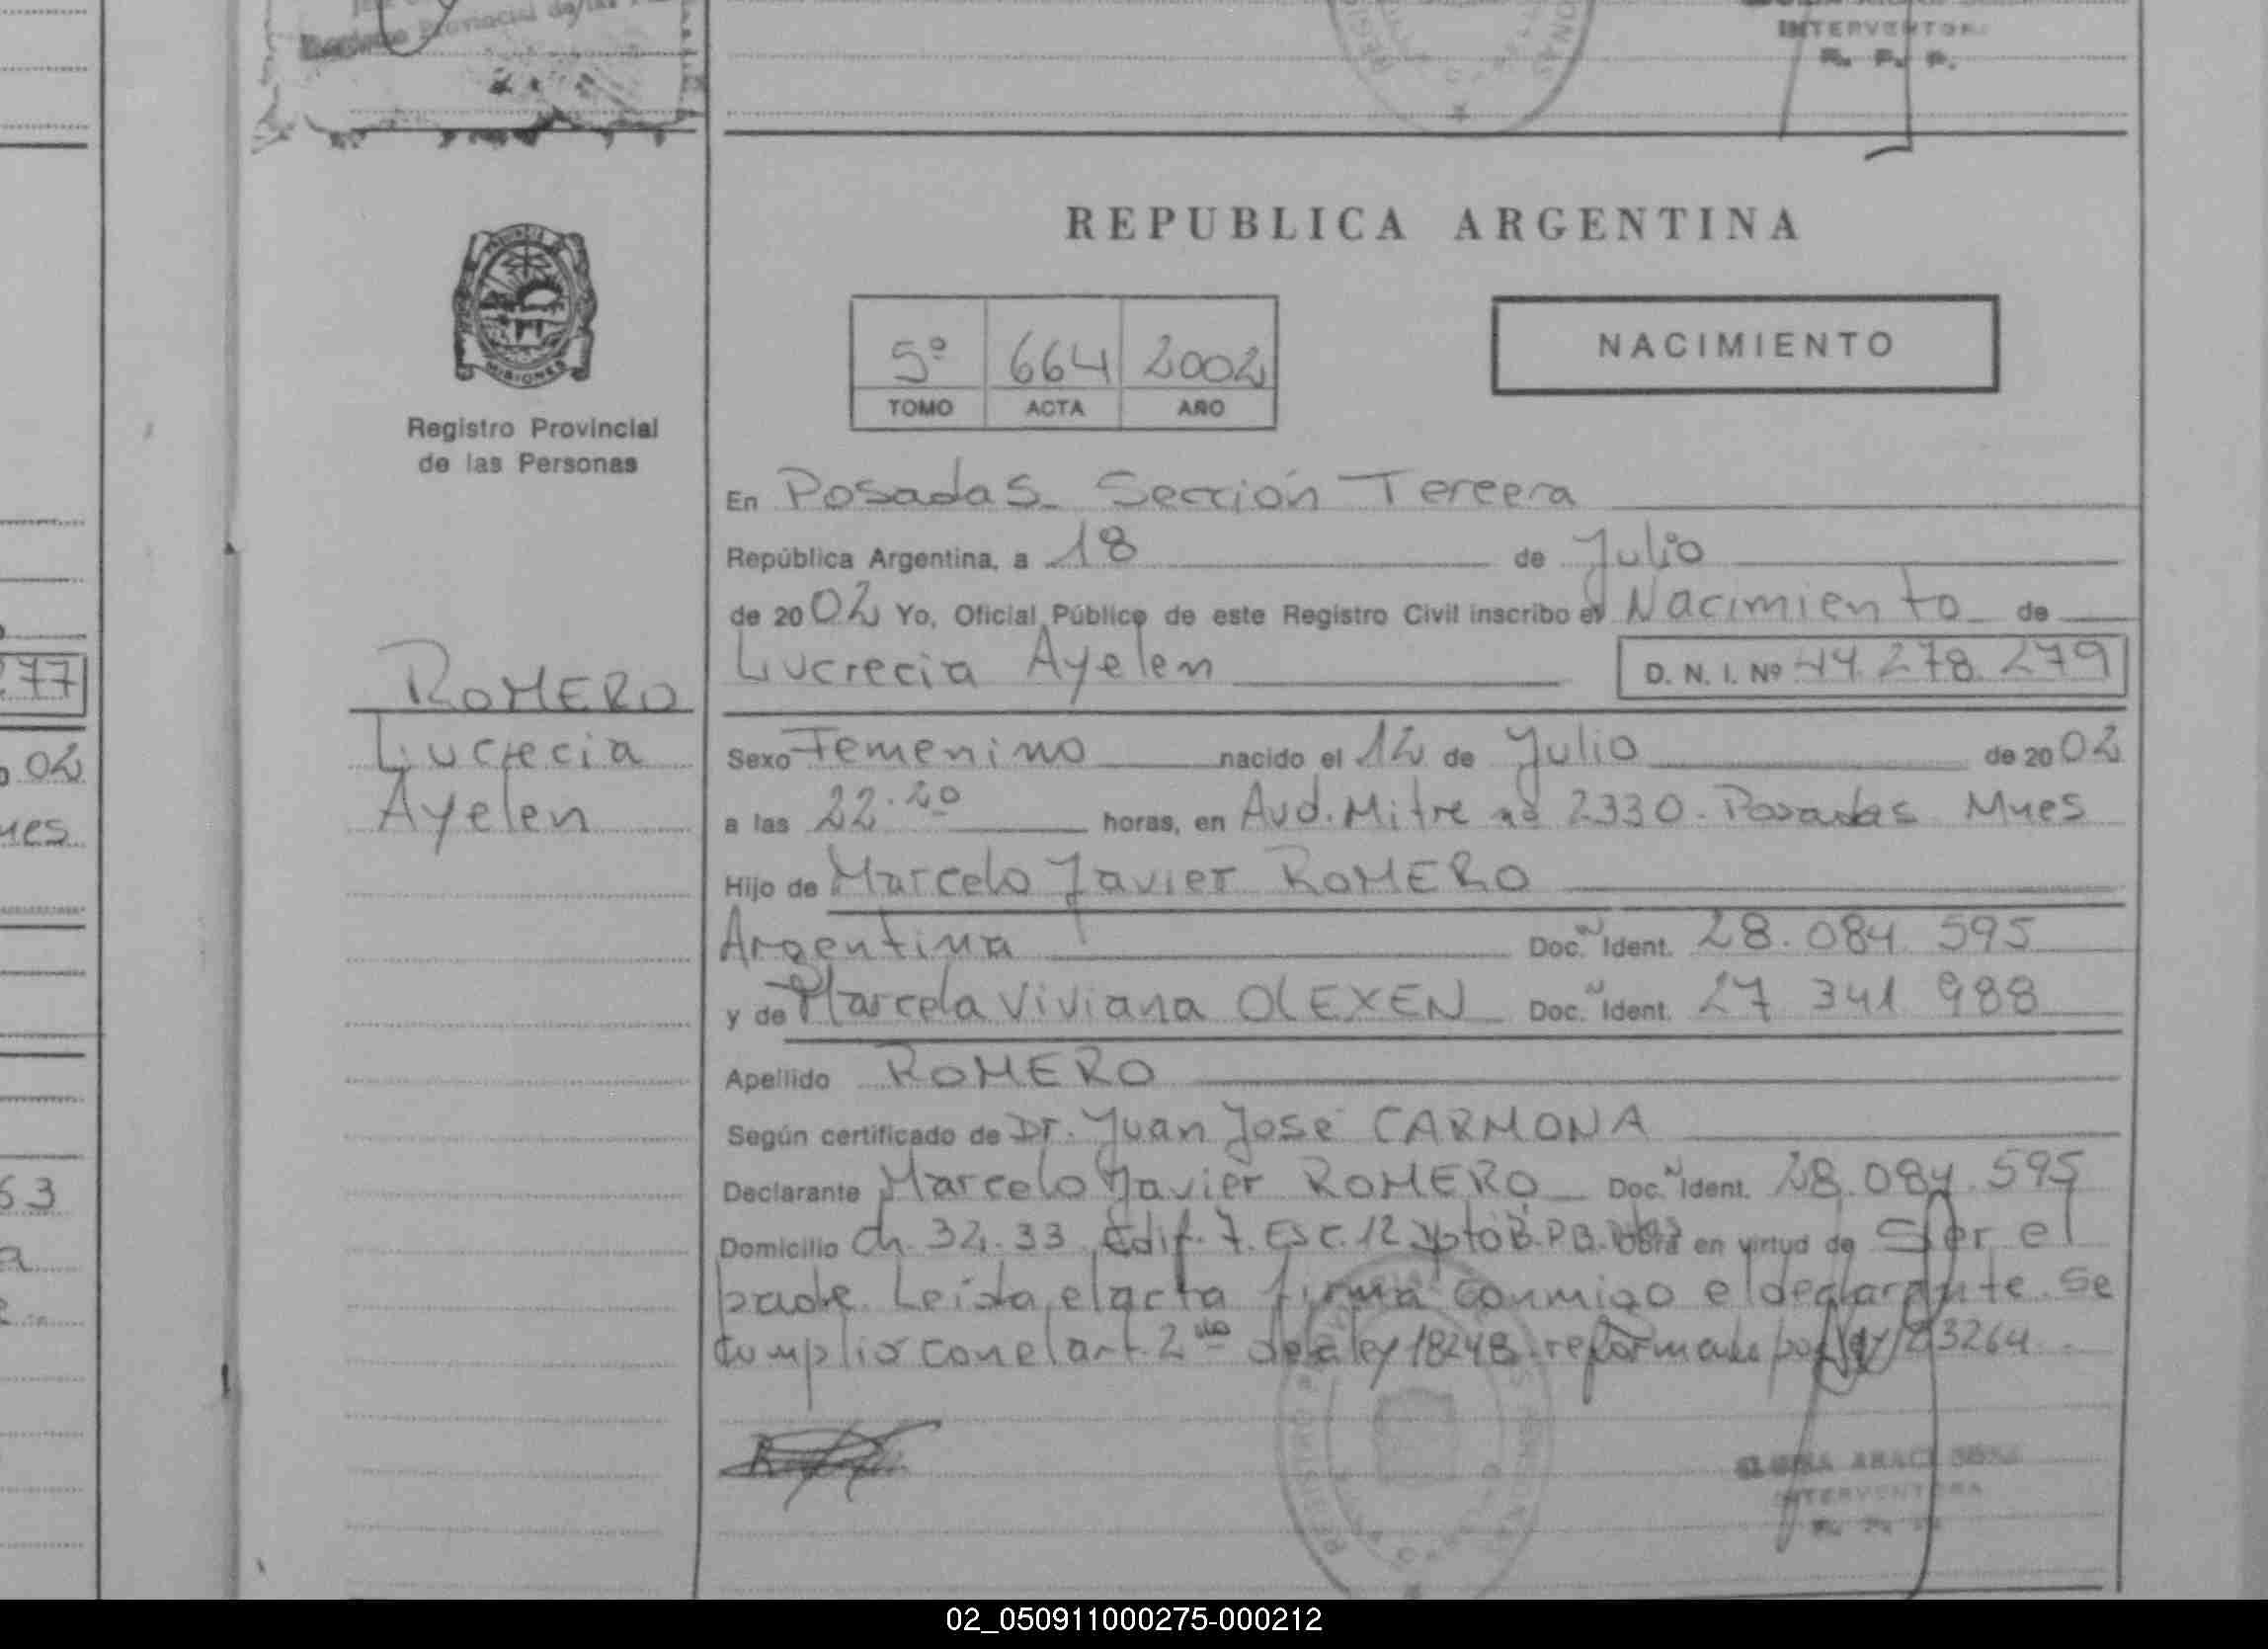 INTERVENTORA
R. P. P.
REPUBLICA ARGENTINA
MISIONES
5º 664 2002
TOMO ACTA AÑO
NACIMIENTO
Registro Provincial
de las Personas
En Posadas. Sección Tercera
República Argentina, a 18 de Julio
de 2002 Yo, Oficial Público de este Registro Civil inscribo el Nacimiento de
Lucrecia Ayelen D. N. I. Nº 44.278.279
277
ROMERO
Lucrecia
Ayelen
Sexo Femenino nacido el 12 de Julio de 2002
02
a las 22.20 horas, en Avd. Mitre nº 2330. Posadas Mnes
nes
Hijo de Marcelo Javier ROMERO
Argentina Doc. N Ident. 28.084.595
y de Marcela Viviana OLEXEN Doc. N Ident. 27 341 988
Apellido ROMERO
Según certificado de Dr. Juan José CARMONA
Declarante Marcelo Javier ROMERO Doc. N Ident. 28.084.595
63
Domicilio Ch. 32.33 Edif. 7. Esc. 12 Dpto B. P.B. Obra en virtud de Ser el
padre. Leída el acta firma conmigo el declarante. Se
cumplio con el art. 2do de la ley 18248 reformado por ley 23264
INTERVENTORA
02_050911000275-000212